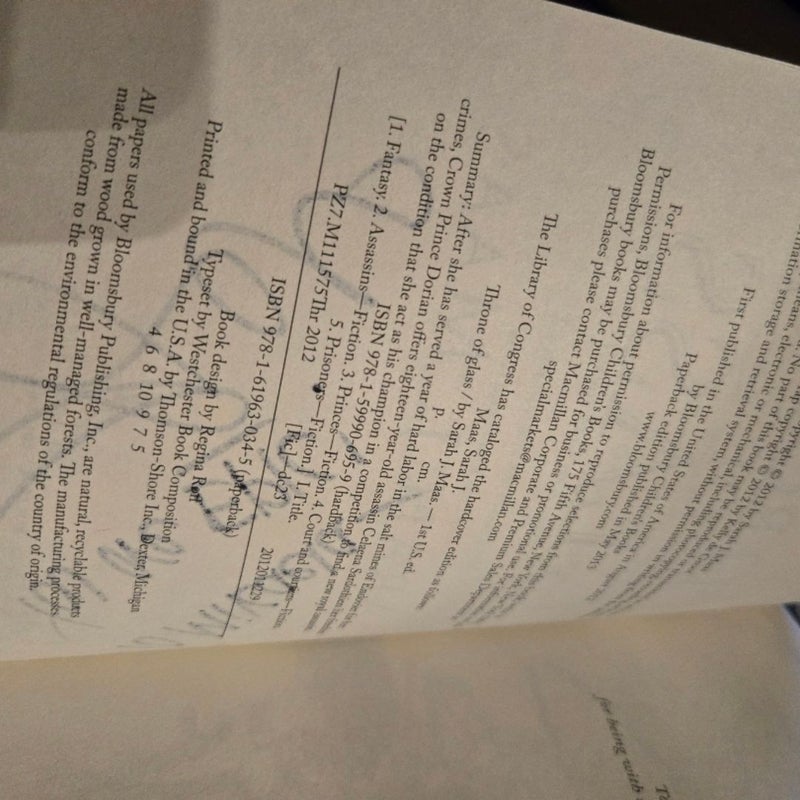 copyright © 2012 by Sarah J. Maas
First published in the United States of America in August 2012
by Bloomsbury Children's Books
Paperback edition published in May 2013
www.bloomsbury.com
For information about permission to reproduce selections
Permissions, Bloomsbury Children's Books, 175 Fifth Avenue, New
Bloomsbury books may be purchased for business or promotional use.
purchases please contact Macmillan Corporate and Premium Sales
specialmarkets@macmillan.com
The Library of Congress has cataloged the hardcover edition as follows:
Maas, Sarah J.
Throne of glass / by Sarah J. Maas. — 1st U.S. ed.
p. cm.
Summary: After she has served a year of hard labor in the salt mines of Endovier for her
crimes, Crown Prince Dorian offers eighteen-year-old assassin Celaena Sardothien her
on the condition that she act as his champion in a competition to find a new royal assassin
ISBN 978-1-59990-695-9 (hardback)
[1. Fantasy. 2. Assassins—Fiction. 3. Princes—Fiction. 4. Court and courtiers—Fiction
5. Prisoners—Fiction.] I. Title.
PZ7.M111575Thr 2012 [Fic]—dc23 2012011229
ISBN 978-1-61963-034-5 (paperback)
Book design by Regina Roff
Typeset by Westchester Book Composition
Printed and bound in the U.S.A. by Thomson-Shore Inc., Dexter, Michigan
4 6 8 10 9 7 5
All papers used by Bloomsbury Publishing, Inc., are natural, recyclable products
made from wood grown in well-managed forests. The manufacturing processes
conform to the environmental regulations of the country of origin.
for being with